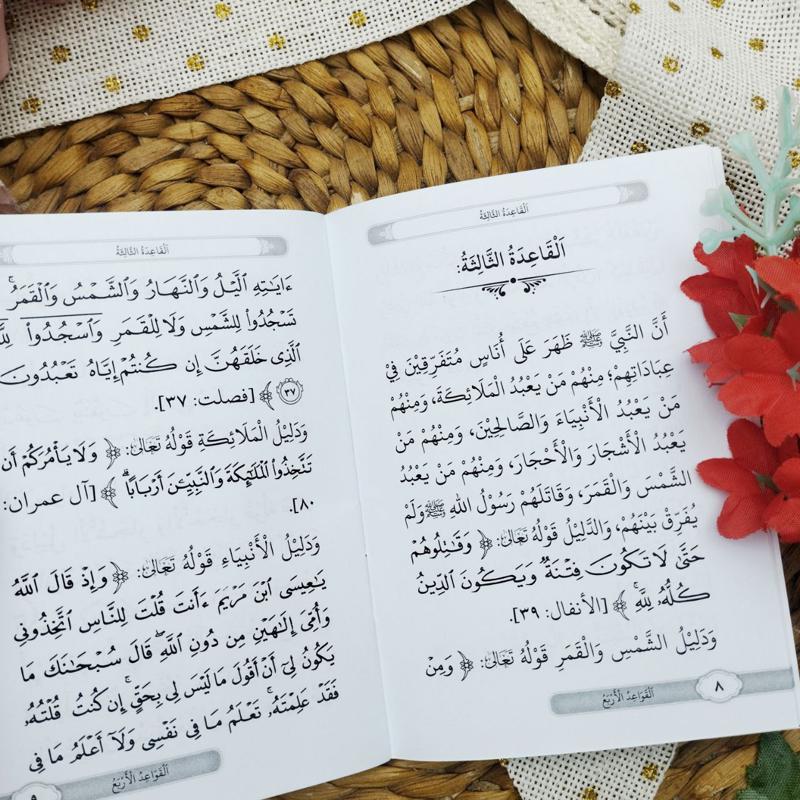 اَلْقَاعِدَةُ الثَّالِثَةُ
اَلْقَاعِدَةُ الثَّالِثَةُ:
أَنَّ النَّبِيَّ ﷺ ظَهَرَ عَلَى أُنَاسٍ مُتَفَرِّقِيْنَ فِيْ
عِبَادَاتِهِمْ؛ مِنْهُمْ مَنْ يَعْبُدُ الْمَلَائِكَةَ، وَمِنْهُمْ
مَنْ يَعْبُدُ الْأَنْبِيَاءَ وَالصَّالِحِيْنَ، وَمِنْهُمْ مَنْ
يَعْبُدُ الْأَشْجَارَ وَالْأَحْجَارَ، وَمِنْهُمْ مَنْ يَعْبُدُ
الشَّمْسَ وَالْقَمَرَ، وَقَاتَلَهُمْ رَسُوْلُ اللهِ ﷺ وَلَمْ
يُفَرِّقْ بَيْنَهُمْ، وَالدَّلِيْلُ قَوْلُهُ تَعَالَى: ﴿ وَقَـٰتِلُوهُمْ
حَتَّىٰ لَا تَكُونَ فِتْنَةٌ وَيَكُونَ ٱلدِّينُ
كُلُّهُۥ لِلَّهِ ۚ ﴾ [الأنفال: ٣٩].
وَدَلِيْلُ الشَّمْسِ وَالْقَمَرِ قَوْلُهُ تَعَالَى: ﴿ وَمِنْ
اَلْقَوَاعِدُ الْأَرْبَعُ
٨
اَلْقَاعِدَةُ الثَّالِثَةُ
ءَايَـٰتِهِ ٱلَّيْلُ وَٱلنَّهَارُ وَٱلشَّمْسُ وَٱلْقَمَرُ ۚ
تَسْجُدُوا۟ لِلشَّمْسِ وَلَا لِلْقَمَرِ وَٱسْجُدُوا۟
ٱلَّذِى خَلَقَهُنَّ إِن كُنتُمْ إِيَّاهُ تَعْبُدُونَ
٣٧ ﴾ [فصلت: ٣٧].
وَدَلِيْلُ الْمَلَائِكَةِ قَوْلُهُ تَعَالَى: ﴿ وَلَا يَأْمُرَكُمْ أَن
تَتَّخِذُوا۟ ٱلْمَلَـٰٓئِكَةَ وَٱلنَّبِيِّـۧنَ أَرْبَابًا ۗ ﴾ [آل عمران:
٨٠].
وَدَلِيْلُ الْأَنْبِيَاءِ قَوْلُهُ تَعَالَى: ﴿ وَإِذْ قَالَ ٱللَّهُ
يَـٰعِيسَى ٱبْنَ مَرْيَمَ ءَأَنتَ قُلْتَ لِلنَّاسِ ٱتَّخِذُونِى
وَأُمِّىَ إِلَـٰهَيْنِ مِن دُونِ ٱللَّهِ ۖ قَالَ سُبْحَـٰنَكَ مَا
يَكُونُ لِىٓ أَنْ أَقُولَ مَا لَيْسَ لِى بِحَقٍّ ۚ إِن كُنتُ قُلْتُهُۥ
فَقَدْ عَلِمْتَهُۥ ۚ تَعْلَمُ مَا فِى نَفْسِى وَلَآ أَعْلَمُ مَا فِى
اَلْقَوَاعِدُ الْأَرْبَعُ
٩